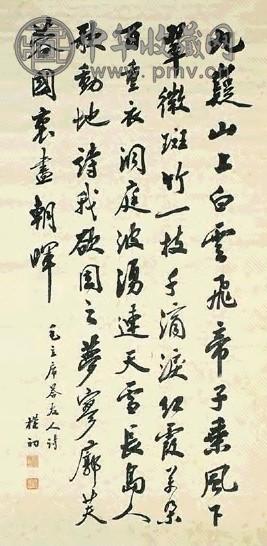 中华收藏网
九嶷山上白雲飛帝子乘風下
翠微斑竹一枝千滴淚紅霞萬朵
百重衣洞庭波湧連天雪長島人
歌動地詩我欲因之夢寥廓芙
蓉國裏盡朝暉
毛主席答友人詩
樸初